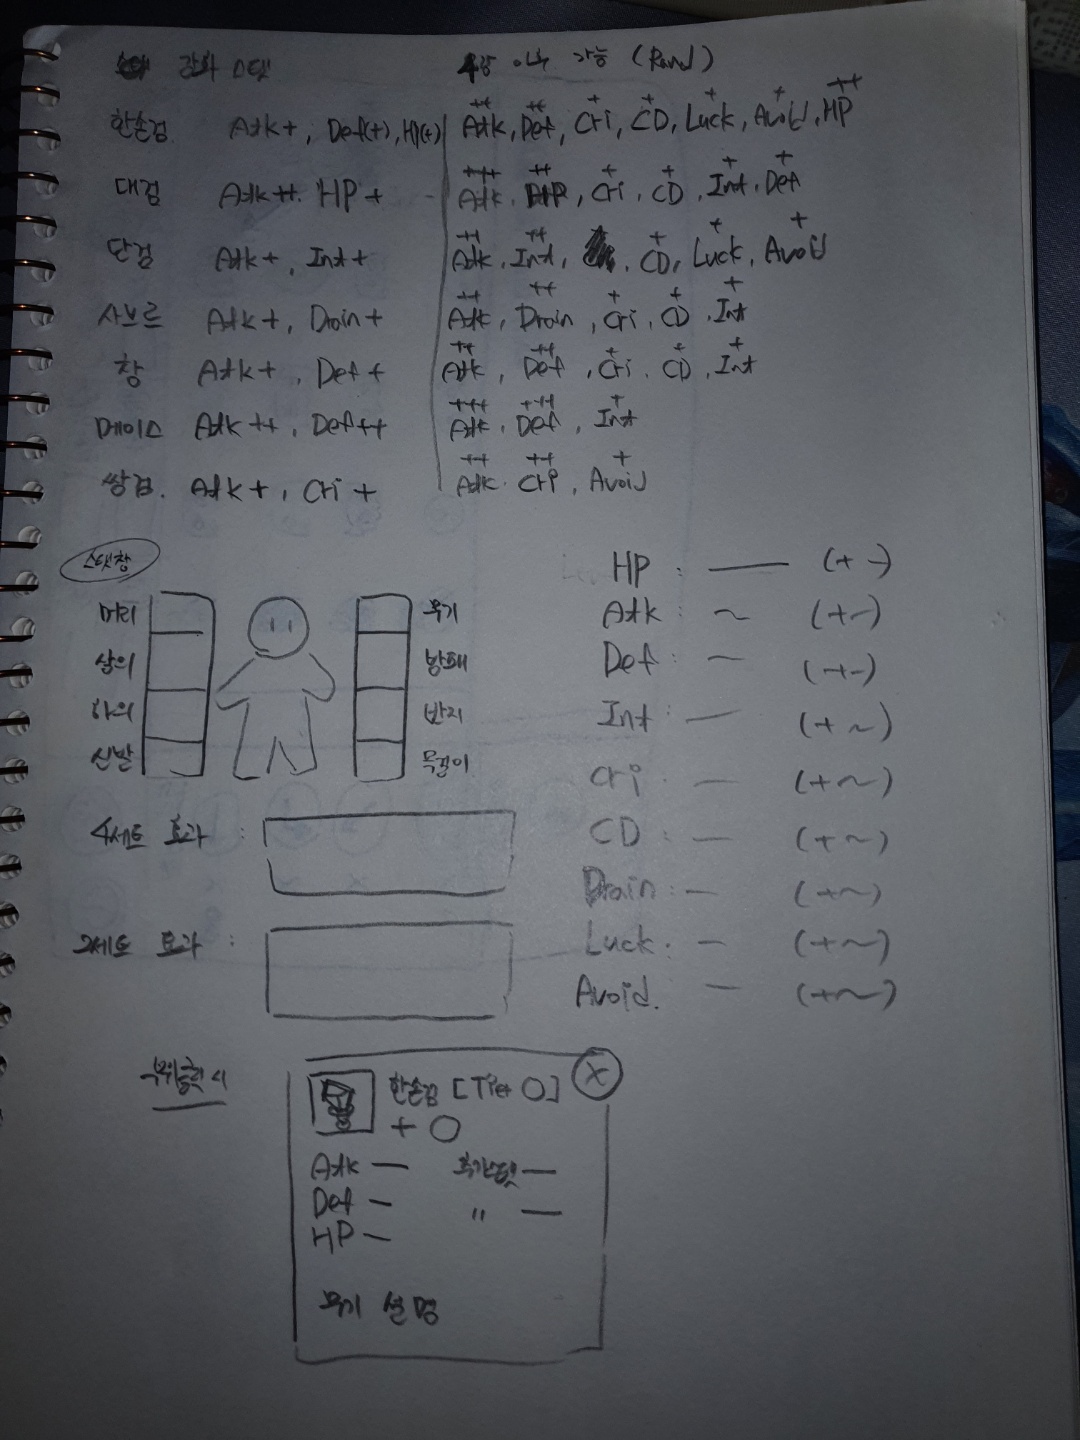 강화 스탯 4강 이후 가능 (Rand)
한손검 Atk+, Def(+), HP(+) Atk++, Def++, Cri+, CD+, Luck+, Avoid+, HP++
대검 Atk++. HP+ Atk+++. HP++, Cri+. CD+. Int+. Def+
단검 Atk+, Int+ Atk++. Int++, CD+, Luck+, Avoid+
사브르 Atk+, Drain+ Atk++, Drain++, Cri+. CD+. Int+
창 Atk+, Def+ Atk++, Def++, Cri+. CD+, Int+
메이스 Atk++, Def++ Atk+++. Def+++, Int+
쌍검. Atk+, Cri+ Atk++. Cri++, Avoid+
스탯창
머리 무기
상의 방패
하의 반지
신발 목걸이
4세트 효과 :
2세트 효과 :
HP : — (+ -)
Atk : ~ (+~)
Def : — (+-)
Int : — (+ ~)
Cri : — (+~)
CD : — (+~)
Drain : — (+~)
Luck : — (+~)
Avoid. — (+~)
부위클릭 시
한손검 [Tier ○] X
+ ○
Atk — 추가스탯 —
Def — " —
HP —
무기 설명